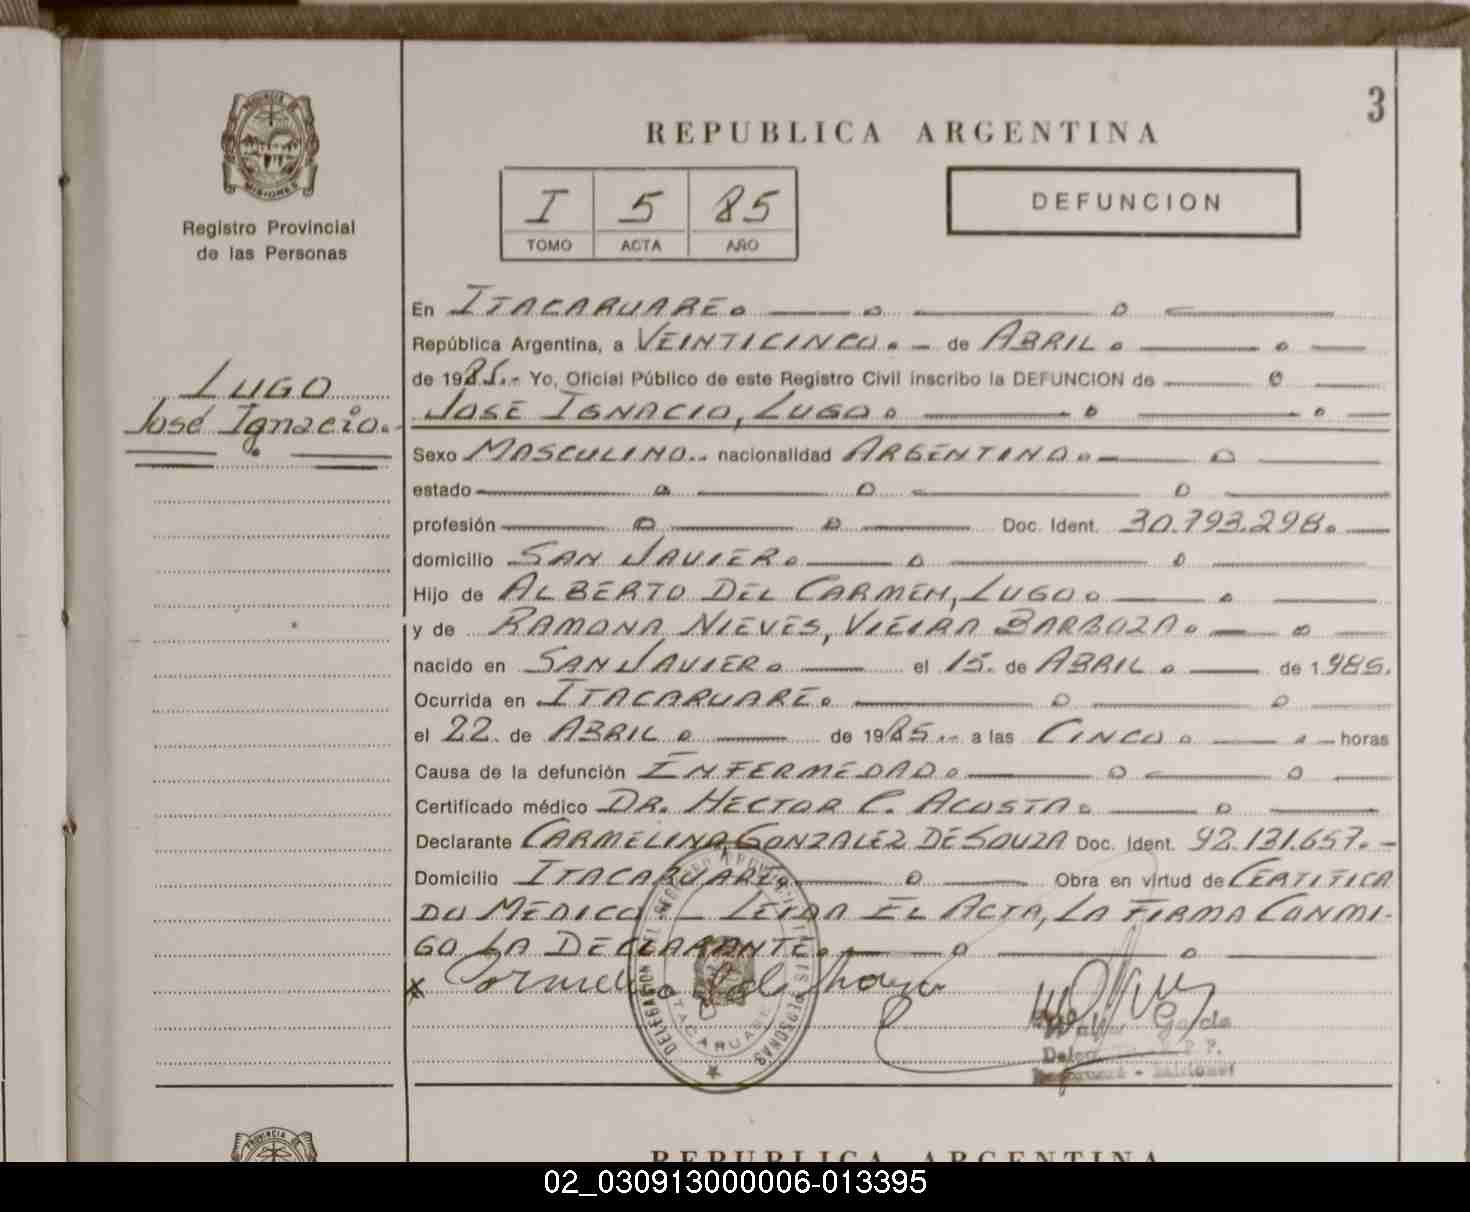 3
PROVINCIA DE
MISIONES
Registro Provincial
de las Personas
LUGO
José Ignacio.
REPUBLICA ARGENTINA
I 5 85
TOMO ACTA AÑO
DEFUNCION
En ITACARUARE
República Argentina, a VEINTICINCO.- de ABRIL
de 1985.- Yo, Oficial Público de este Registro Civil inscribo la DEFUNCION de
JOSE IGNACIO, LUGO
Sexo MASCULINO.- nacionalidad ARGENTINO
estado
profesión Doc. Ident. 30.793.298.
domicilio SAN JAVIER
Hijo de ALBERTO DEL CARMEN, LUGO
y de RAMONA NIEVES, VIEIRA BARBOZA
nacido en SAN JAVIER el 15. de ABRIL de 1.985.
Ocurrida en ITACARUARE
el 22. de ABRIL de 1985.- a las CINCO horas
Causa de la defunción ENFERMEDAD
Certificado médico DR. HECTOR C. ACOSTA
Declarante CARMELINA, GONZALEZ DE SOUZA Doc. Ident. 92.131.657.-
Domicilio ITACARUARE Obra en virtud de CERTIFICA
DO MEDICO.- LEIDA EL ACTA, LA FIRMA CONMI-
GO LA DECLARANTE
x
DELEGACION DEL REGISTRO PROVINCIAL DE LAS PERSONAS
ITACARUARE
Walter García
R. P. P.
- Misiones
PROVINCIA DE
REPUBLICA ARGENTINA
02_030913000006-013395